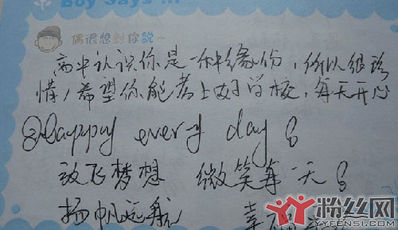 Boy Says ...
偶很想对你說~
高中认识你是一种缘份，所以很珍
惜！希望你能考上好学校，每天开心
Happy every day
放飞梦想 微笑每一天
扬帆远航 幸福
粉丝网
YYFENSI.COM